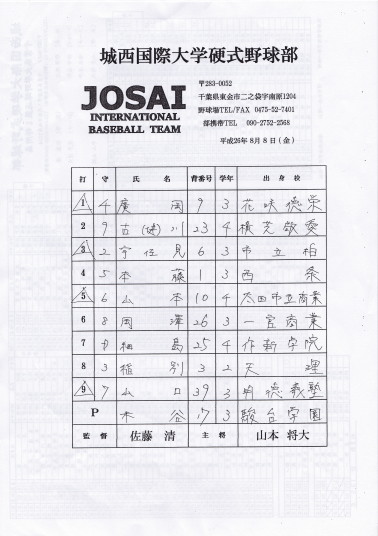 城西国際大学硬式野球部
JOSAI
INTERNATIONAL
BASEBALL TEAM
〒283-0052
千葉県東金市二之袋字南原1204
野球場TEL/FAX 0475-52-7401
部携帯TEL 090-2752-2568
平成26年8月8日(金)
打 守 氏 名 背番号 学年 出身校
1 4 廣岡 9 3 花咲徳栄
2 9 古(健)川 23 4 横芝敬愛
3 2 宇佐見 6 3 市立柏
4 5 本藤 1 3 西条
5 6 山本 10 4 太田市立商業
6 8 岡澤 26 3 一宮商業
7 D 細島 25 4 作新学院
8 3 稲別 3 2 天理
9 7 山口 39 3 明徳義塾
P 木谷 17 3 駿台学園
監督 佐藤 清 主将 山本 将大